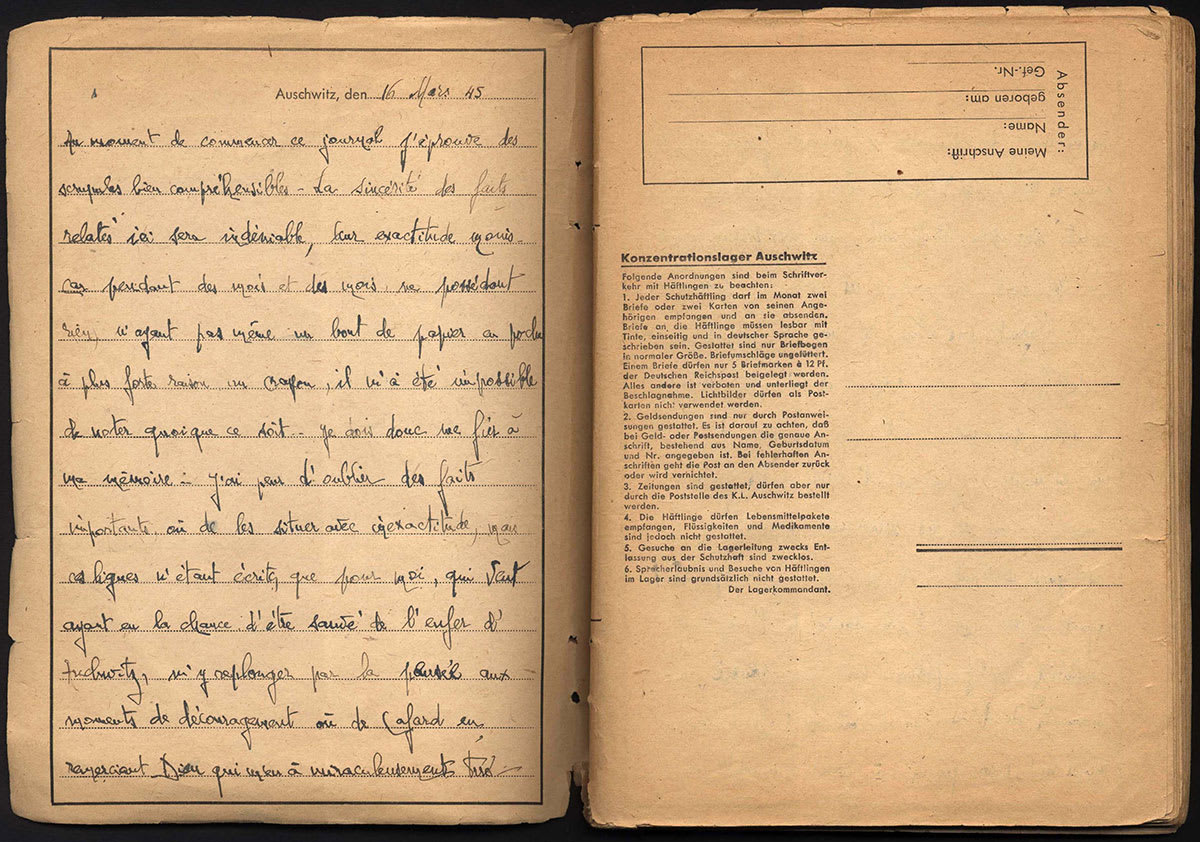 Auschwitz, den 16 Mars 45
Au moment de commencer ce journal j'éprouve des
scrupules bien compréhensibles - La sincérité des faits
relatés ici sera indéniable, leur exactitude moins -
car pendant des mois et des mois, ne possédant
rien, n'ayant pas même un bout de papier au poche
à plus forte raison un crayon, il m'a été impossible
de noter quoique ce soit - je dois donc me fier à
ma mémoire - J'ai peur d'oublier des faits
importants, où de les situer avec inexactitude, mais
ces lignes n'étant écrites que pour moi, qui veut
ayant eu la chance d'être sauvé de l'enfer d'
m'y replonger par la pensée aux
moments de découragement où de Cafard en
remerciant Dieu qui m'en à miraculeusement tiré -
Absender:
Meine Anschrift:
Name:
geboren am:
Gef.-Nr.
Konzentrationslager Auschwitz
Folgende Anordnungen sind beim Schriftver-
kehr mit Häftlingen zu beachten:
1. Jeder Schutzhäftling darf im Monat zwei
Briefe oder zwei Karten von seinen Ange-
hörigen empfangen und an sie absenden.
Briefe an die Häftlinge müssen lesbar mit
Tinte, einseitig und in deutscher Sprache ge-
schrieben sein. Gestattet sind nur Briefbogen
in normaler Größe. Briefumschläge ungefüttert.
Einem Briefe dürfen nur 5 Briefmarken à 12 Pf.
der Deutschen Reichspost beigelegt werden.
Alles andere ist verboten und unterliegt der
Beschlagnahme. Lichtbilder dürfen als Post-
karten nicht verwendet werden.
2. Geldsendungen sind nur durch Postanwei-
sungen gestattet. Es ist darauf zu achten, daß
bei Geld- oder Postsendungen die genaue An-
schrift, bestehend aus Name, Geburtsdatum
und Nr. angegeben ist. Bei fehlerhaften An-
schriften geht die Post an den Absender zurück
oder wird vernichtet.
3. Zeitungen sind gestattet, dürfen aber nur
durch die Poststelle des K.L. Auschwitz bestellt
werden.
4. Die Häftlinge dürfen Lebensmittelpakete
empfangen, Flüssigkeiten und Medikamente
sind jedoch nicht gestattet.
5. Gesuche an die Lagerleitung zwecks Ent-
lassung aus der Schutzhaft sind zwecklos.
6. Sprecherlaubnis und Besuche von Häftlingen
im Lager sind grundsätzlich nicht gestattet.
Der Lagerkommandant.